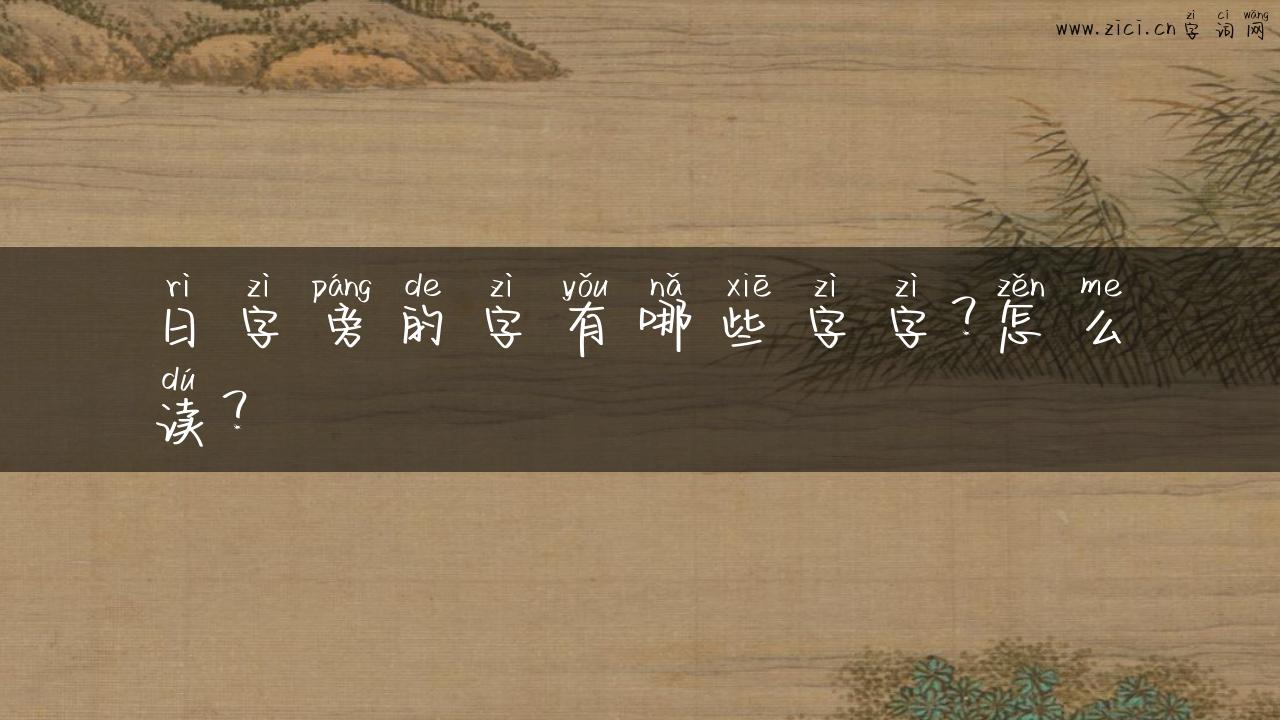 zì cí wǎng
www.zici.cn 字词网
rì zì páng de zì yǒu nǎ xiē zì zì zěn me
日字旁的字有哪些字字?怎么
dú
读?